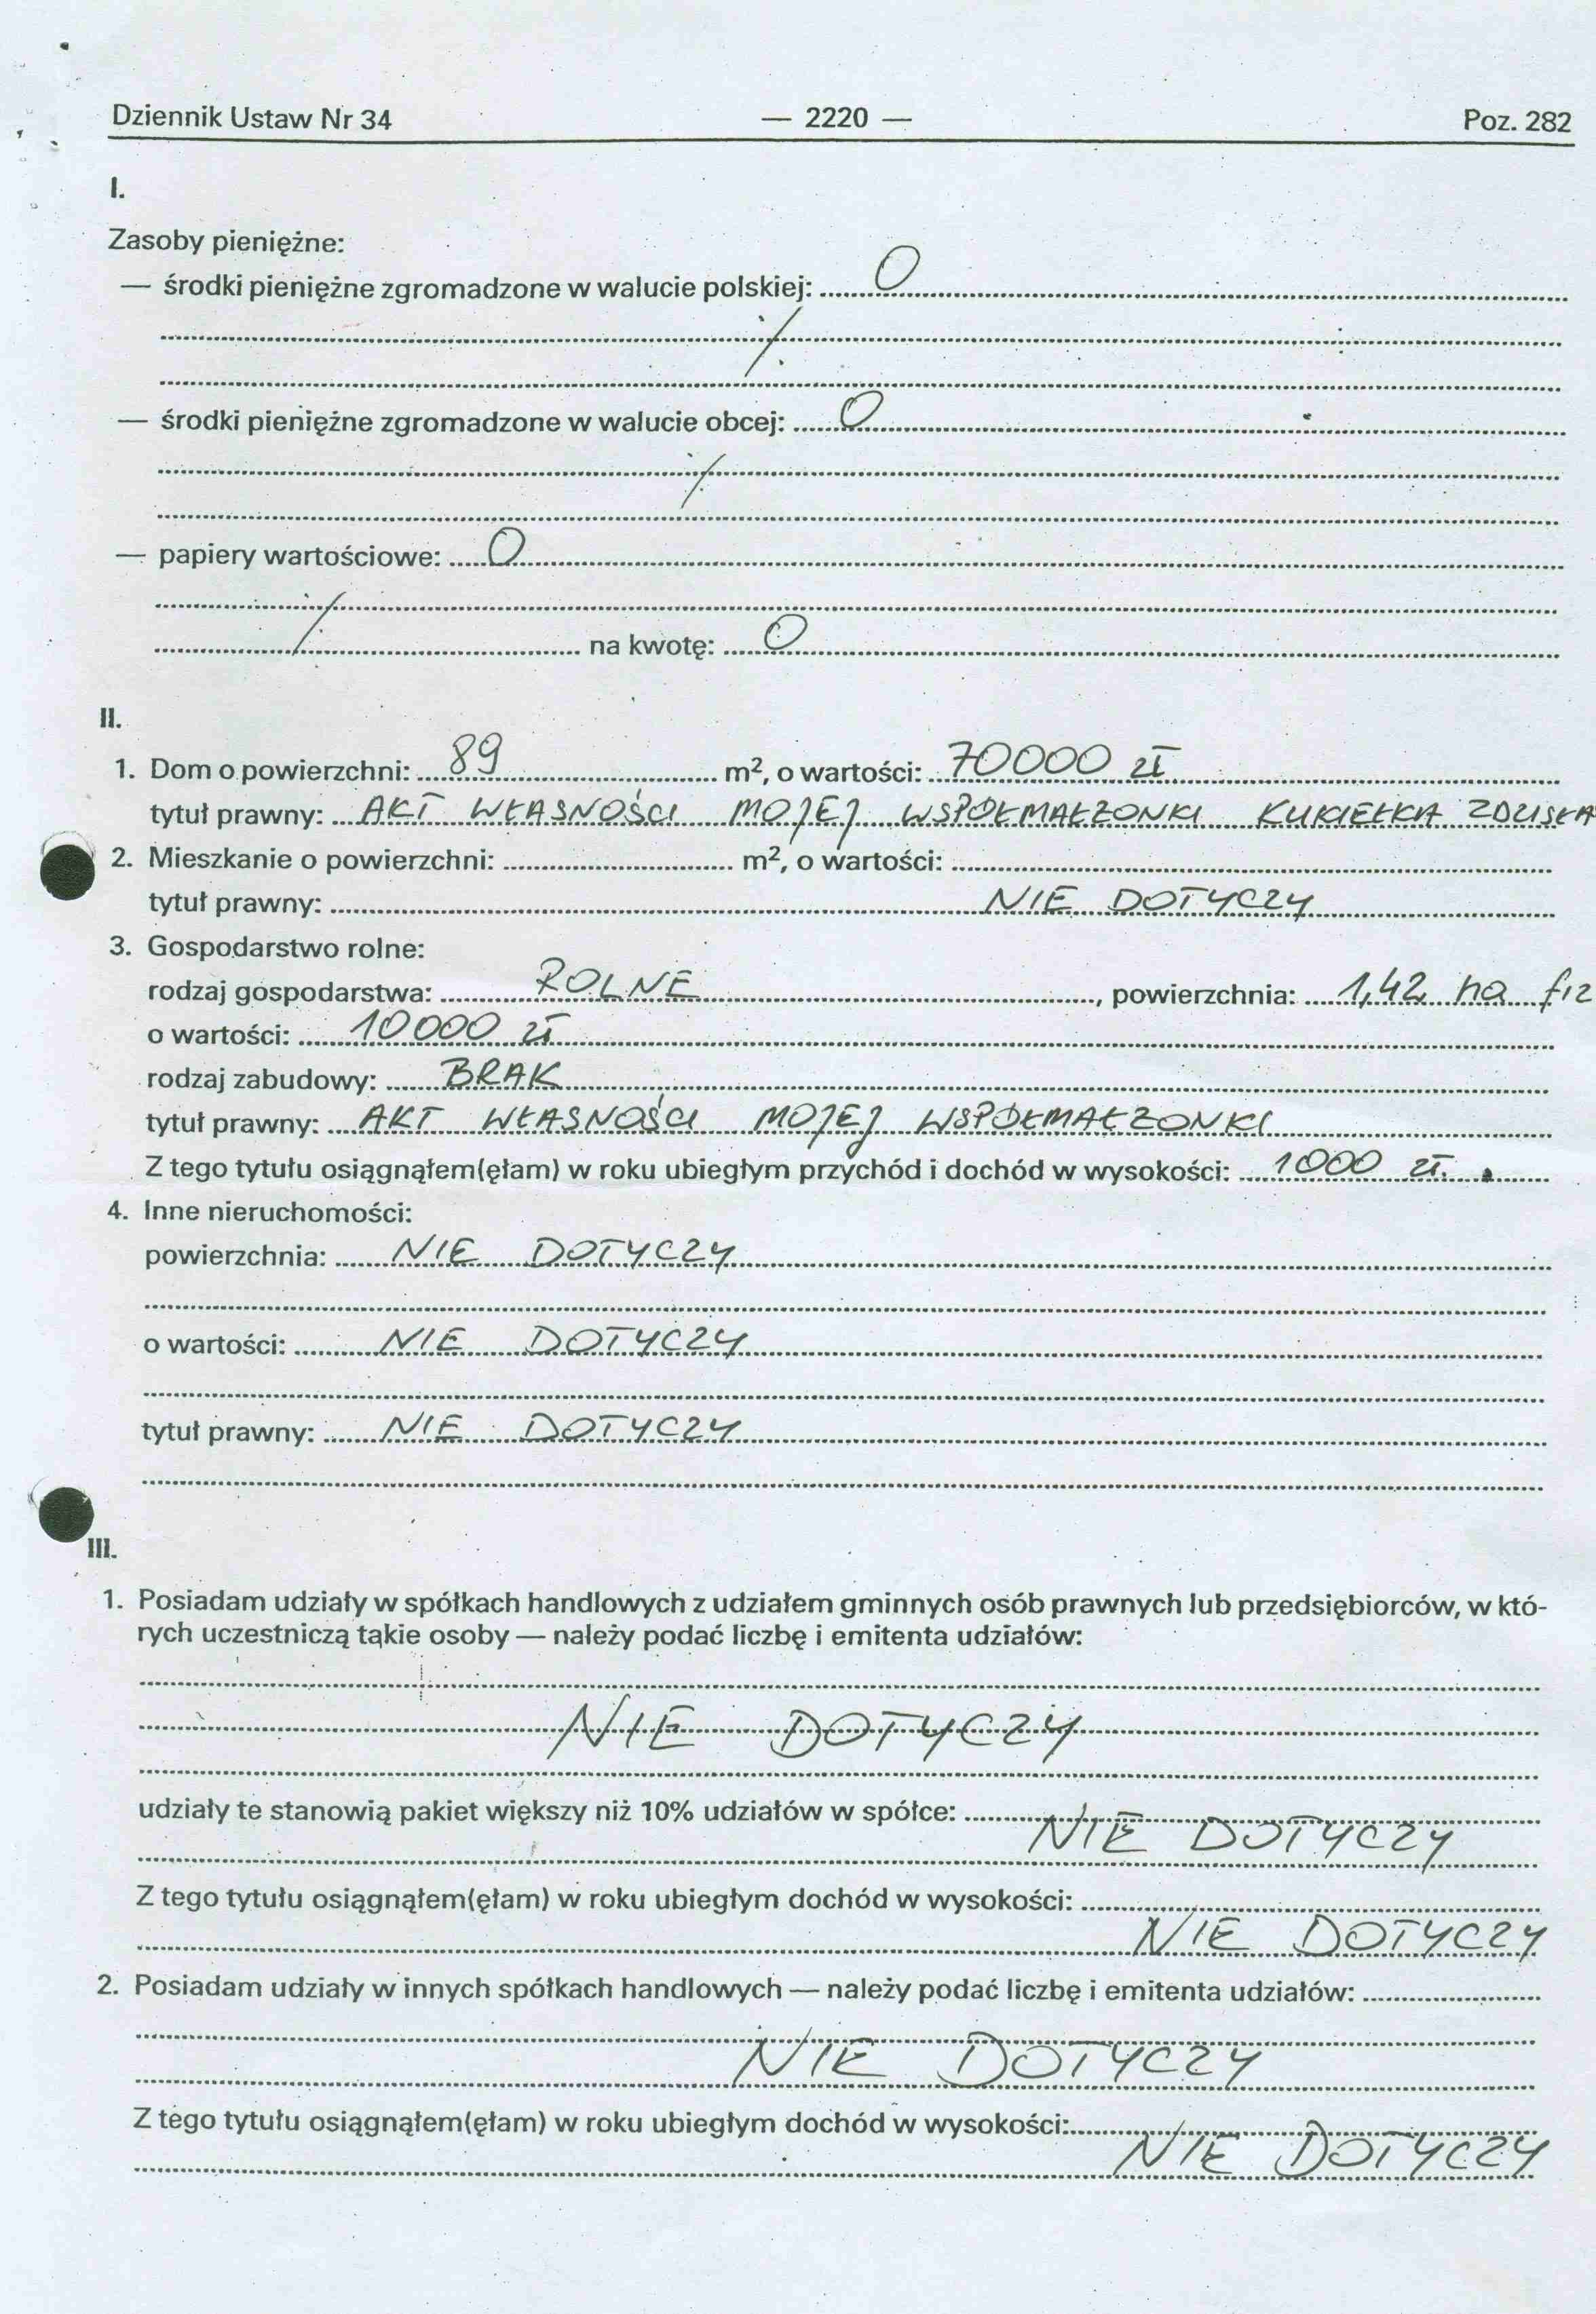 Dziennik Ustaw Nr 34 — 2220 — Poz. 282
I.
Zasoby pieniężne:
— środki pieniężne zgromadzone w walucie polskiej: 0
— środki pieniężne zgromadzone w walucie obcej: 0
— papiery wartościowe: 0
na kwotę: 0
II.
1. Dom o powierzchni: 89 m², o wartości: 70000 zł
tytuł prawny: AKT WŁASNOŚCI MOJEJ WSPÓŁMAŁŻONKI KUKIEŁKA ZDZISŁA
2. Mieszkanie o powierzchni: m², o wartości:
tytuł prawny: NIE DOTYCZY
3. Gospodarstwo rolne:
rodzaj gospodarstwa: ROLNE, powierzchnia: 1,42 ha fiz
o wartości: 10000 zł
rodzaj zabudowy: BRAK
tytuł prawny: AKT WŁASNOŚCI MOJEJ WSPÓŁMAŁŻONKI
Z tego tytułu osiągnąłem(ęłam) w roku ubiegłym przychód i dochód w wysokości: 1000 zł.
4. Inne nieruchomości:
powierzchnia: NIE DOTYCZY
o wartości: NIE DOTYCZY
tytuł prawny: NIE DOTYCZY
III.
1. Posiadam udziały w spółkach handlowych z udziałem gminnych osób prawnych lub przedsiębiorców, w któ-
rych uczestniczą takie osoby — należy podać liczbę i emitenta udziałów:
NIE DOTYCZY
udziały te stanowią pakiet większy niż 10% udziałów w spółce:
NIE DOTYCZY
Z tego tytułu osiągnąłem(ęłam) w roku ubiegłym dochód w wysokości:
NIE DOTYCZY
2. Posiadam udziały w innych spółkach handlowych — należy podać liczbę i emitenta udziałów:
NIE DOTYCZY
Z tego tytułu osiągnąłem(ęłam) w roku ubiegłym dochód w wysokości:
NIE DOTYCZY